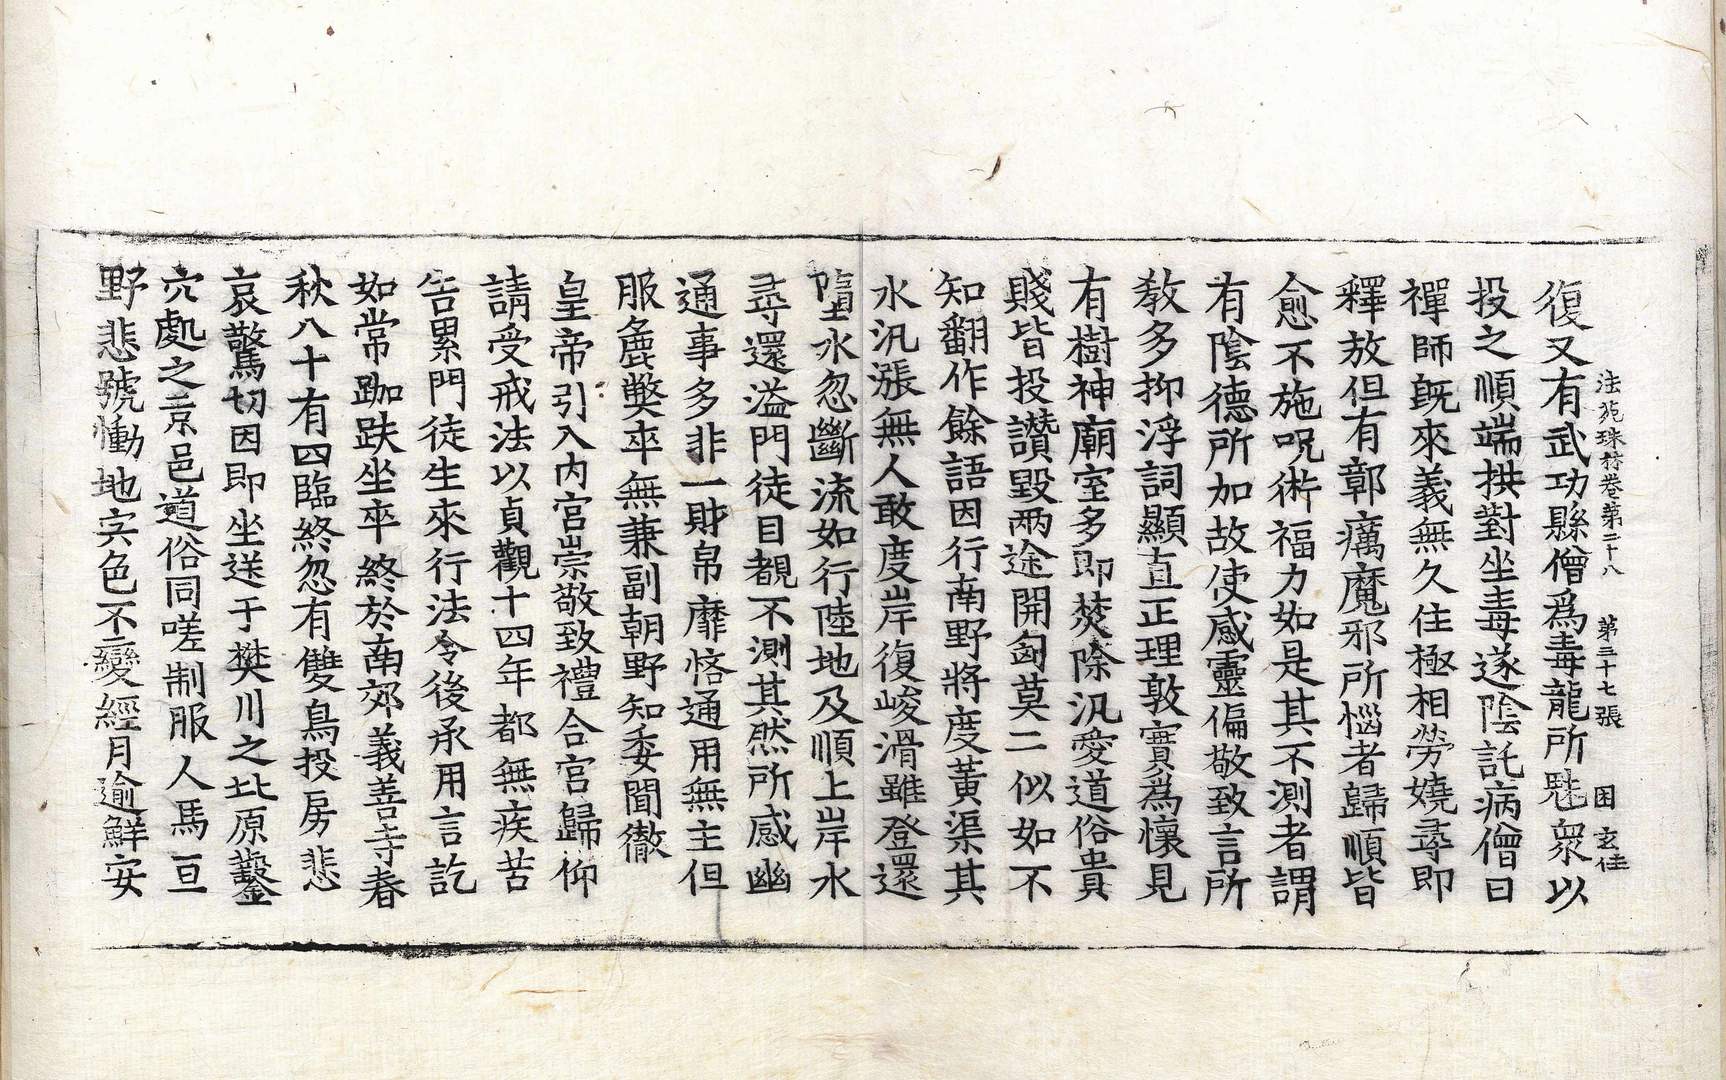 法苑珠林卷第二十八　第三十七張　困　玄佳
復又有武功縣僧爲毒龍所魅衆以
投之順端拱對坐毒遂陰託病僧曰
禪師旣來義無久住極相勞嬈尋即
釋放但有鄣癘魔邪所惱者歸順皆
愈不施呪術福力如是其不測者謂
有陰德所加故使感靈偏敬致言所
敎多抑浮詞顯直正理敦實爲懷見
有樹神廟室多即焚除汎愛道俗貴
賤皆投讚毀兩途開㓙莫二似如不
知翻作餘語因行南野將度黃渠其
水汎漲無人敢度岸復峻滑雖登還
墮水忽斷流如行陸地及順上岸水
尋還溢門徒目覩不測其然所感幽
通事多非一財帛靡悋通用無主但
服麁獘卒無兼副朝野知委聞徹
皇帝引入內宮崇敬致禮合宮歸仰
請受戒法以貞觀十四年都無疾苦
告累門徒生來行法令後承用言訖
如常跏趺坐卒終於南郊義善寺春
秋八十有四臨終忽有雙鳥投房悲
哀驚切因即坐送于樊川之北原鑿
穴處之京邑道俗同嗟制服人馬亘
野悲號慟地宍色不變經月逾鮮安